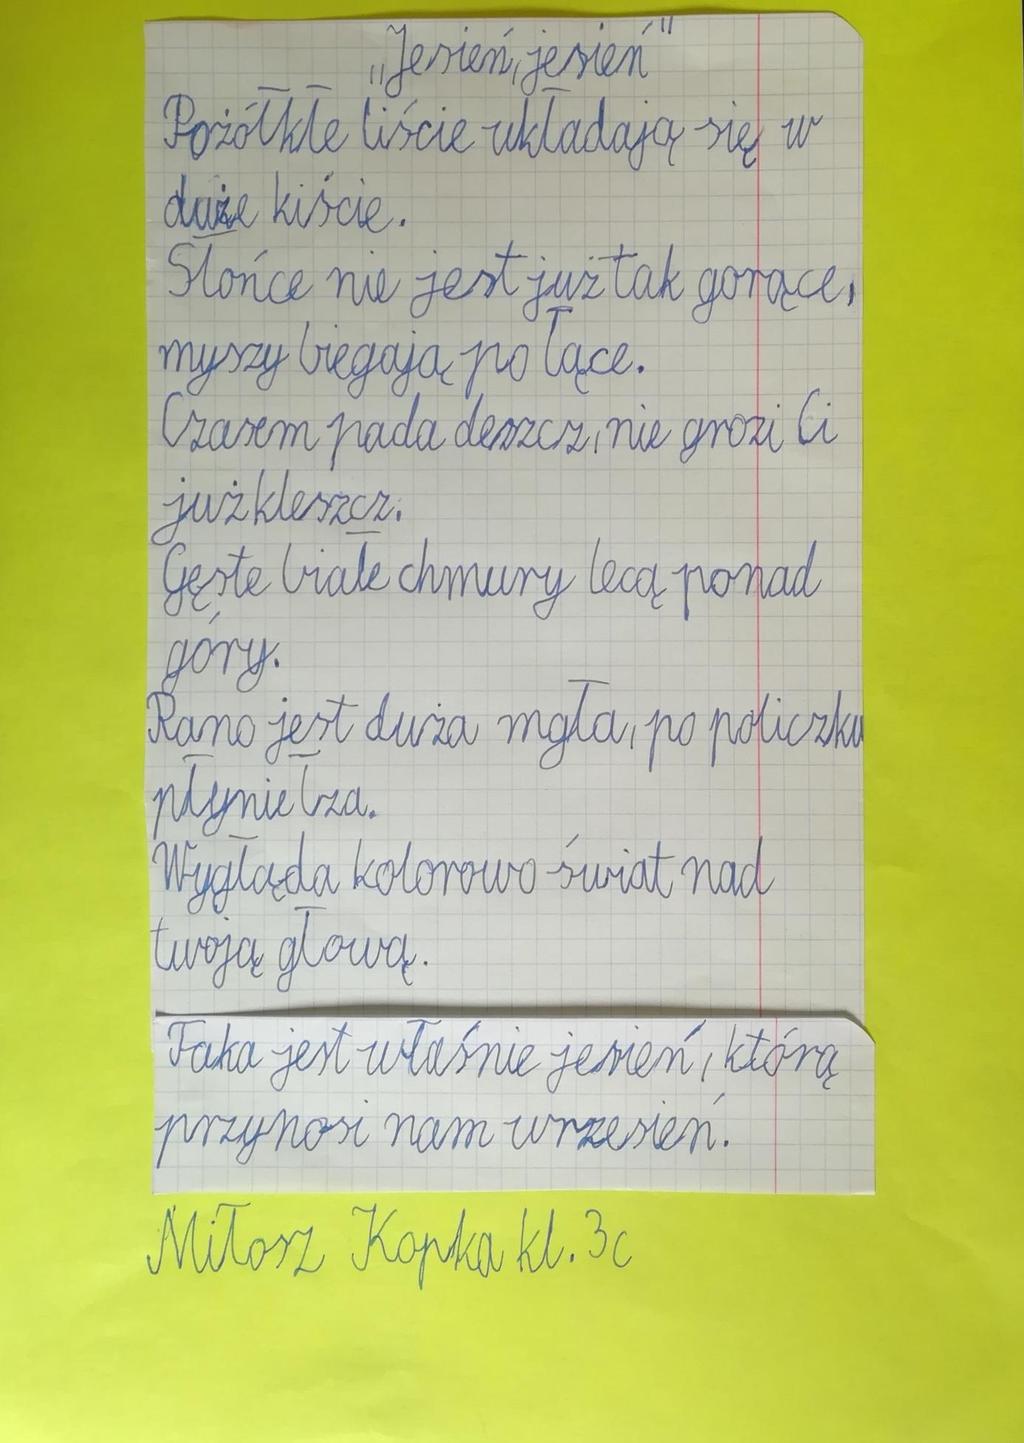 „Jesień, jesień"
Pożółkłe liście układają się w
duże kiście.
Słońce nie jest już tak gorące,
myszy biegają po łące.
Czasem pada deszcz, nie grozi Ci
już kleszcz.
Gęste białe chmury lecą ponad
góry.
Rano jest duża mgła, po policzku
płynie łza.
Wygląda kolorowo świat nad
twoją głową.
Taka jest właśnie jesień, którą
przynosi nam wrzesień.
Miłosz Kopka kl. 3c